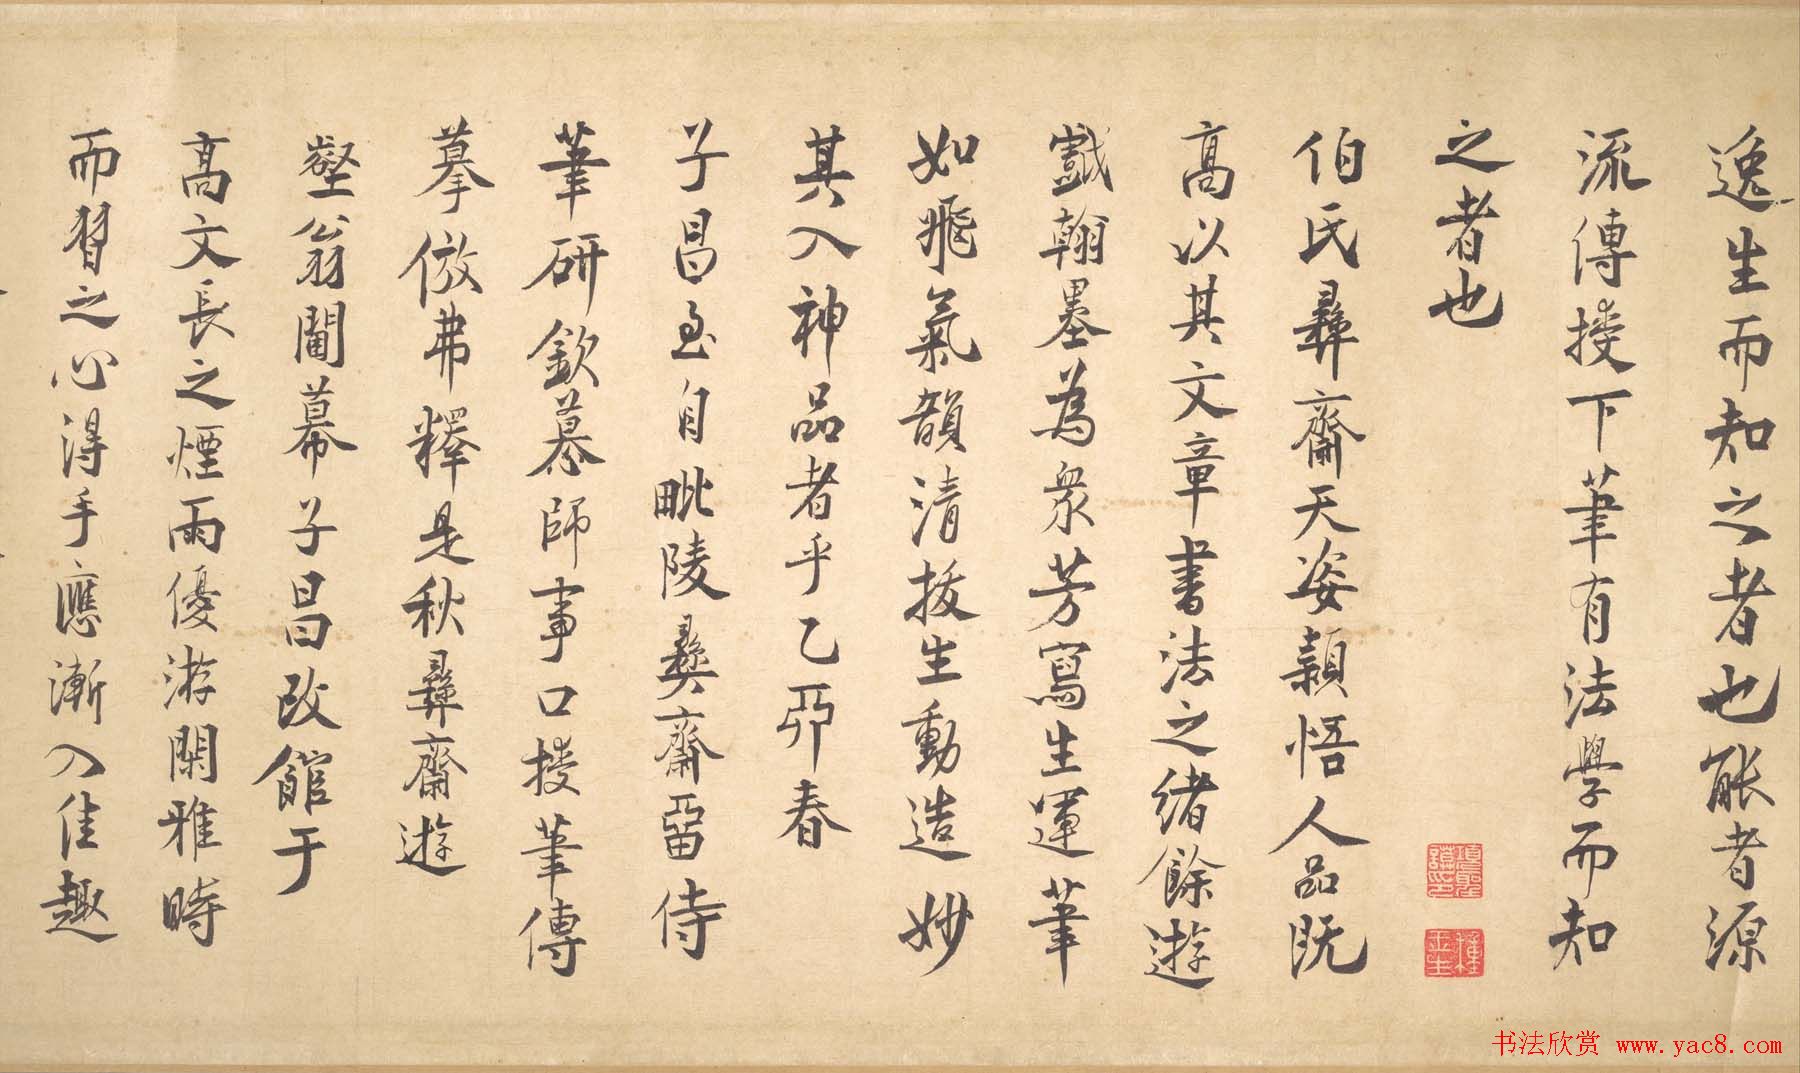 逸生而知之者也能者源
流傳授下筆有法學而知
之者也
伯氏彝齋天姿穎悟人品既
高以其文章書法之緒餘遊
戲翰墨為衆芳寫生運筆
如飛氣韻清拔生動造妙
其入神品者乎乙夘春
子昌至自毗陵彝齋畱侍
筆研欽慕師事口授筆傳
摹倣弗釋是秋彝齋遊
壑翁閫幕子昌改館于
高文長之煙雨優游閑雅時
而習之心得手應漸入佳趣
书法欣赏 www.yac8.com